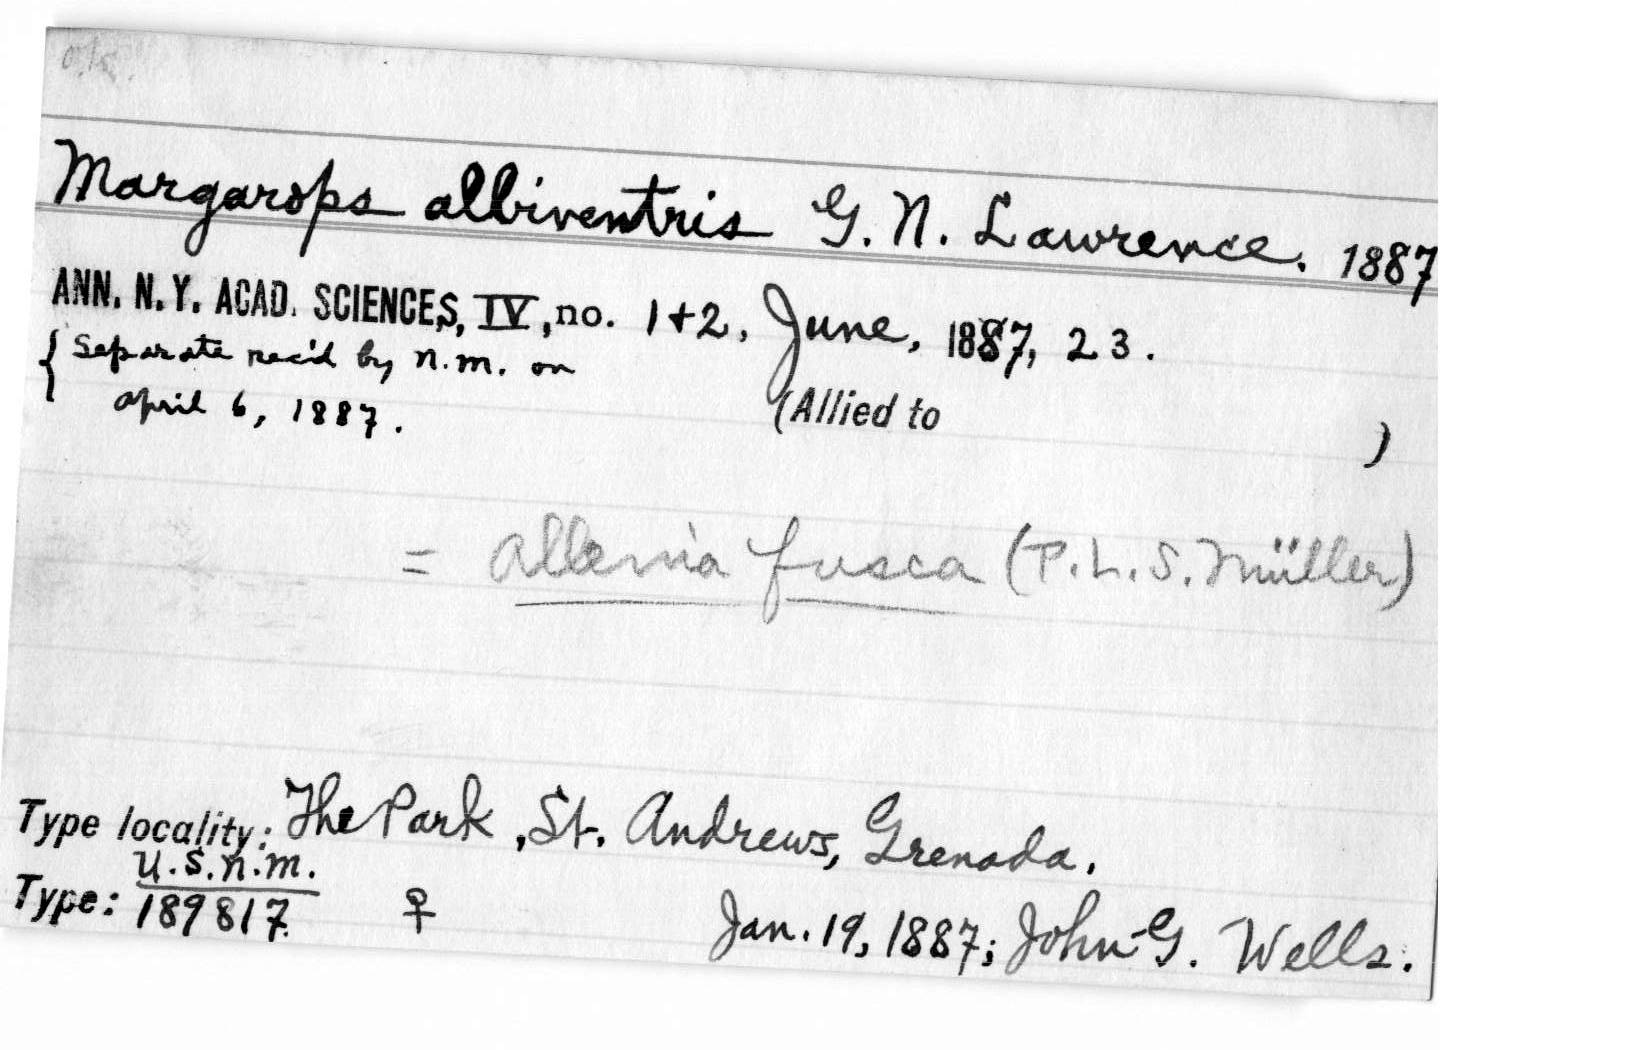 o.k.
Margarops albiventris G. N. Lawrence. 1887
ANN. N.Y. ACAD. SCIENCES, IV, no. 1+2, June, 1887, 23.
{ Separate rec'd by N.M. on
April 6, 1887.
(Allied to )
= Allenia fusca (P.L.S. Müller)
Type locality: The Park, St. Andrews, Grenada.
Type: U.S.N.M. 189817. ♀ Jan. 19, 1887; John G. Wells.